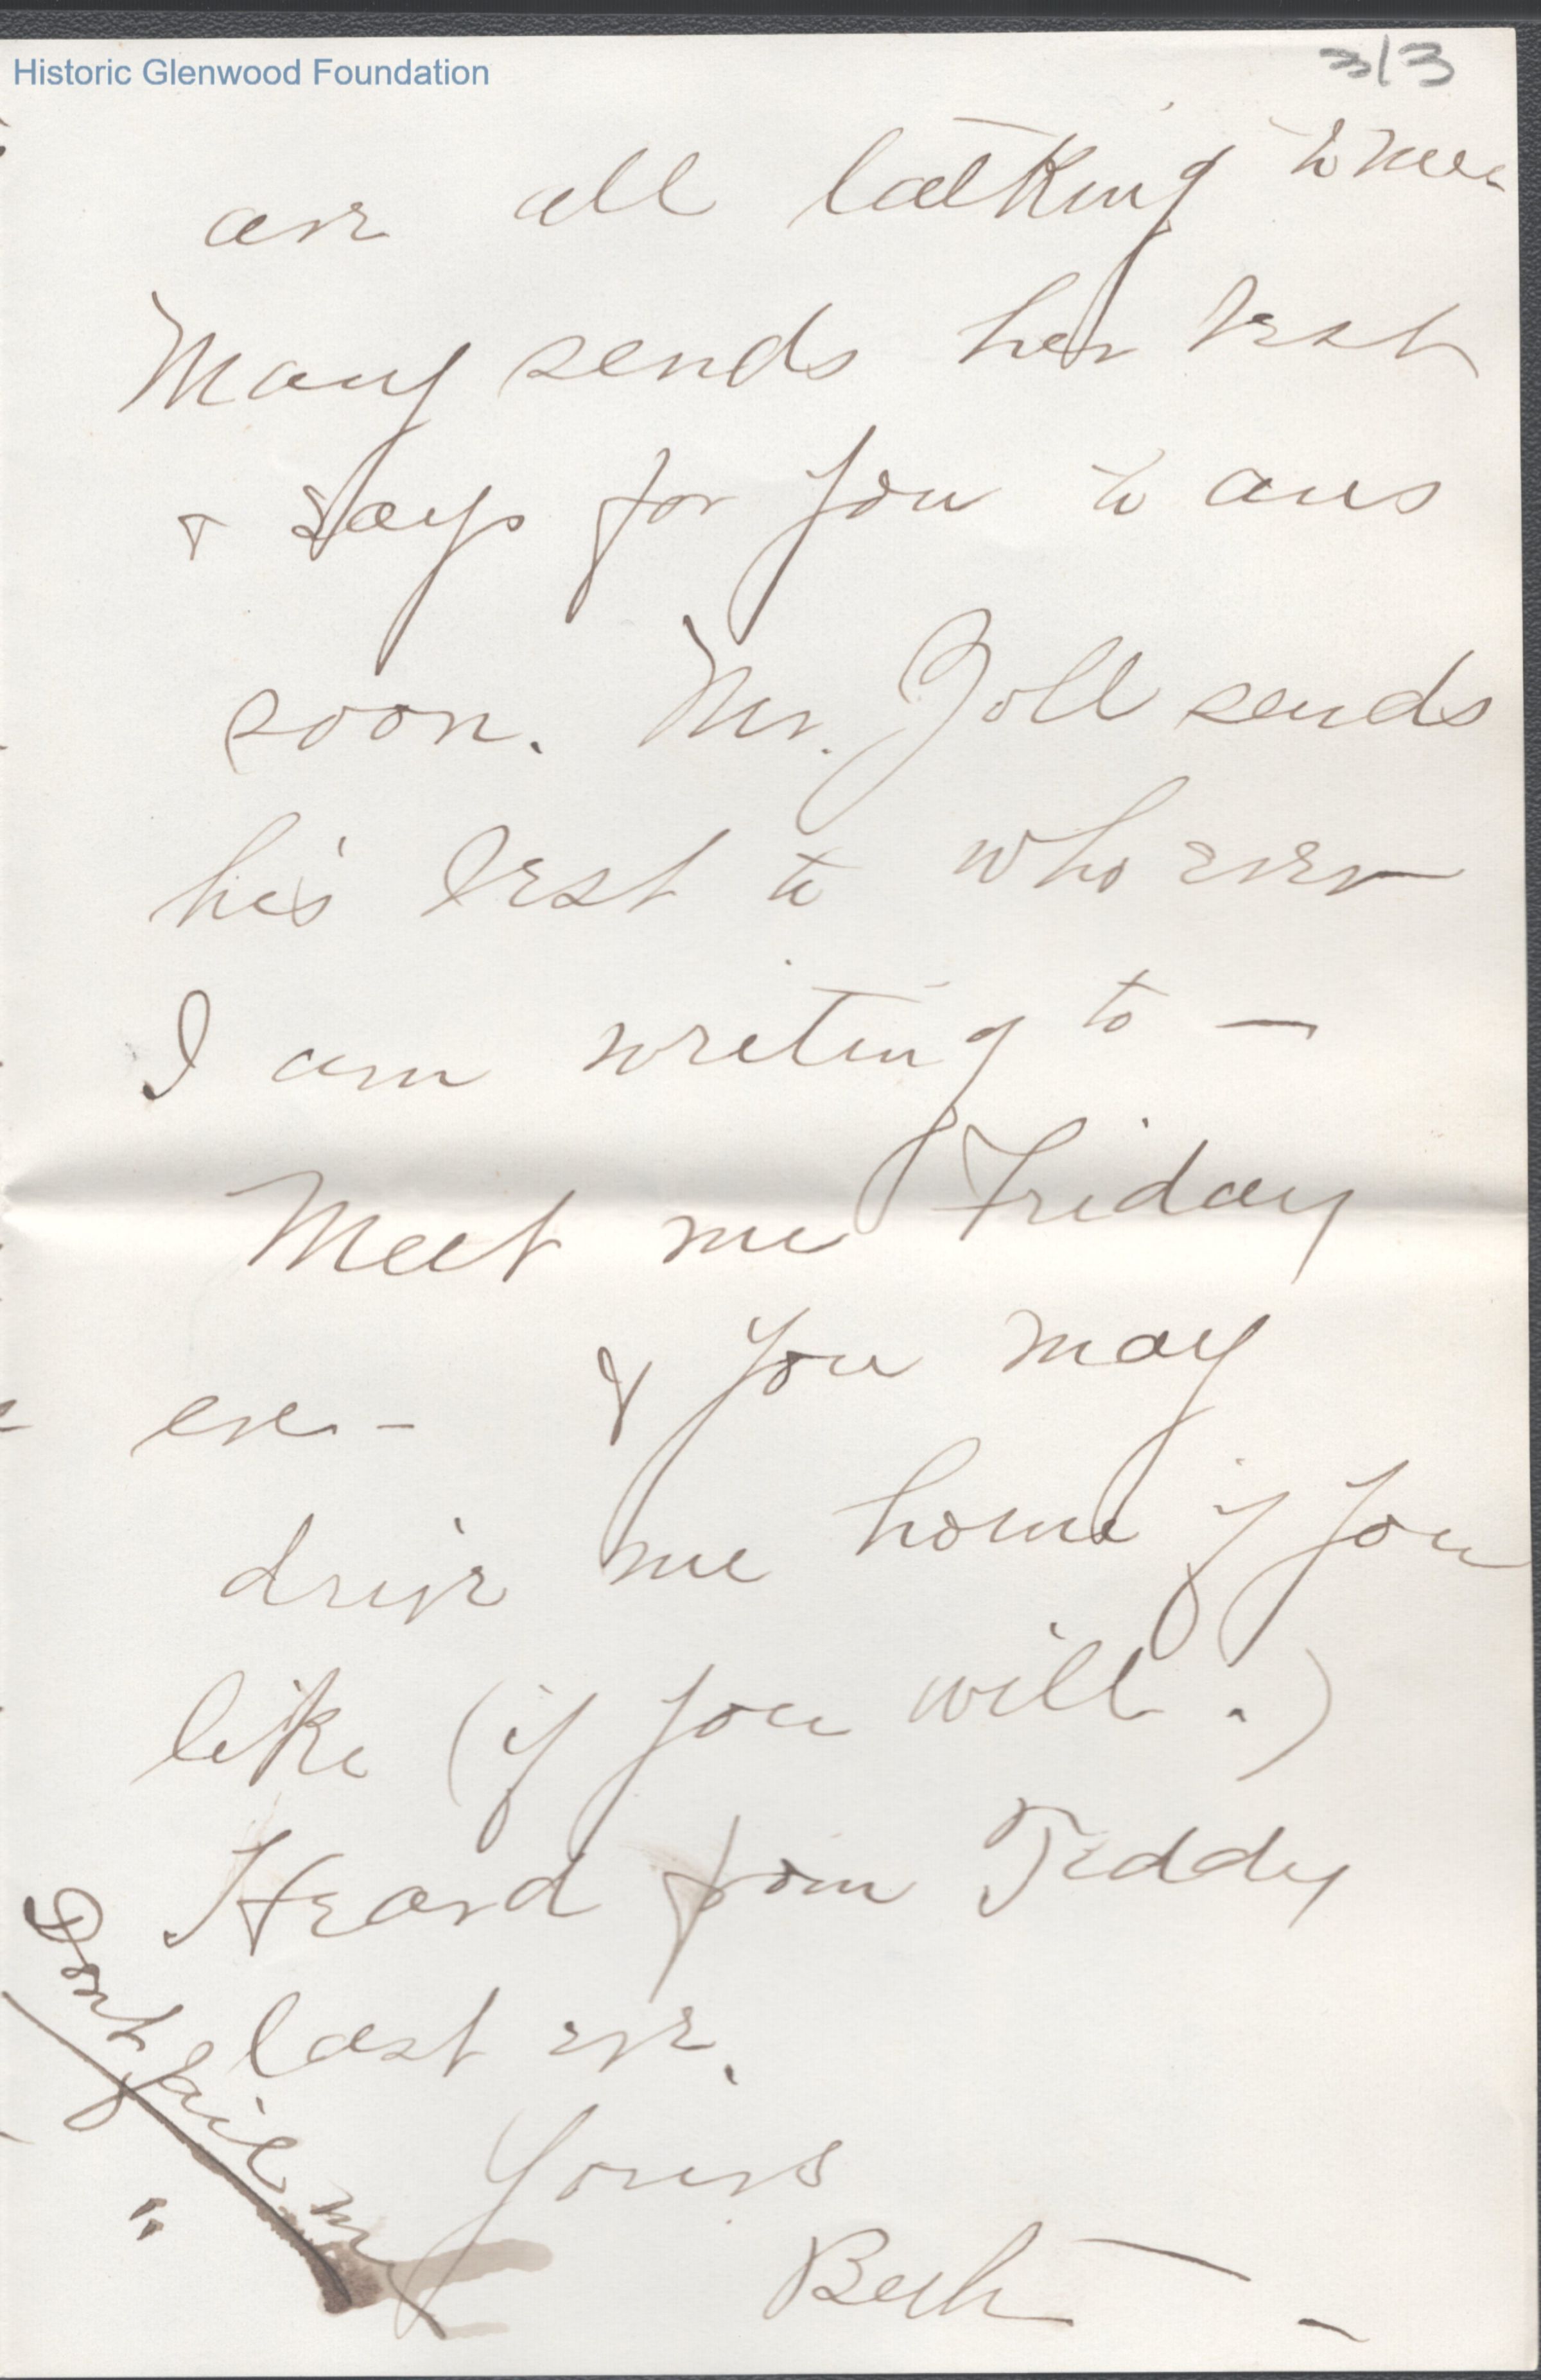 Historic Glenwood Foundation
3/3
are all talking to me.
Mary sends her best
& says for you to ans
soon. Mr. Joll sends
his best to who ever
I am writing to —
Meet me Friday
eve. - & you may
drive me home if you
like (if you will.)
Heard from Teddy
last eve.
Yours
Beth —
Dont fail me